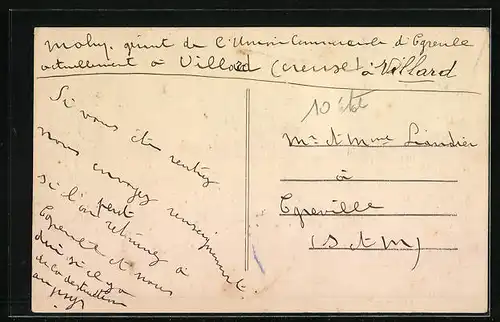 Mohy. gérant de l'Union Commerciale d'Egreville
actuellement à Villard (Creuse) à Villard
Si vous êtes rentrés
nous envoyer renseignements
si l'on peut
retourner à
Egreville et nous
dire si il y a
de la destruction
au pays
10 
Mr et Mme Liandier
à
Egreville
(S et M)